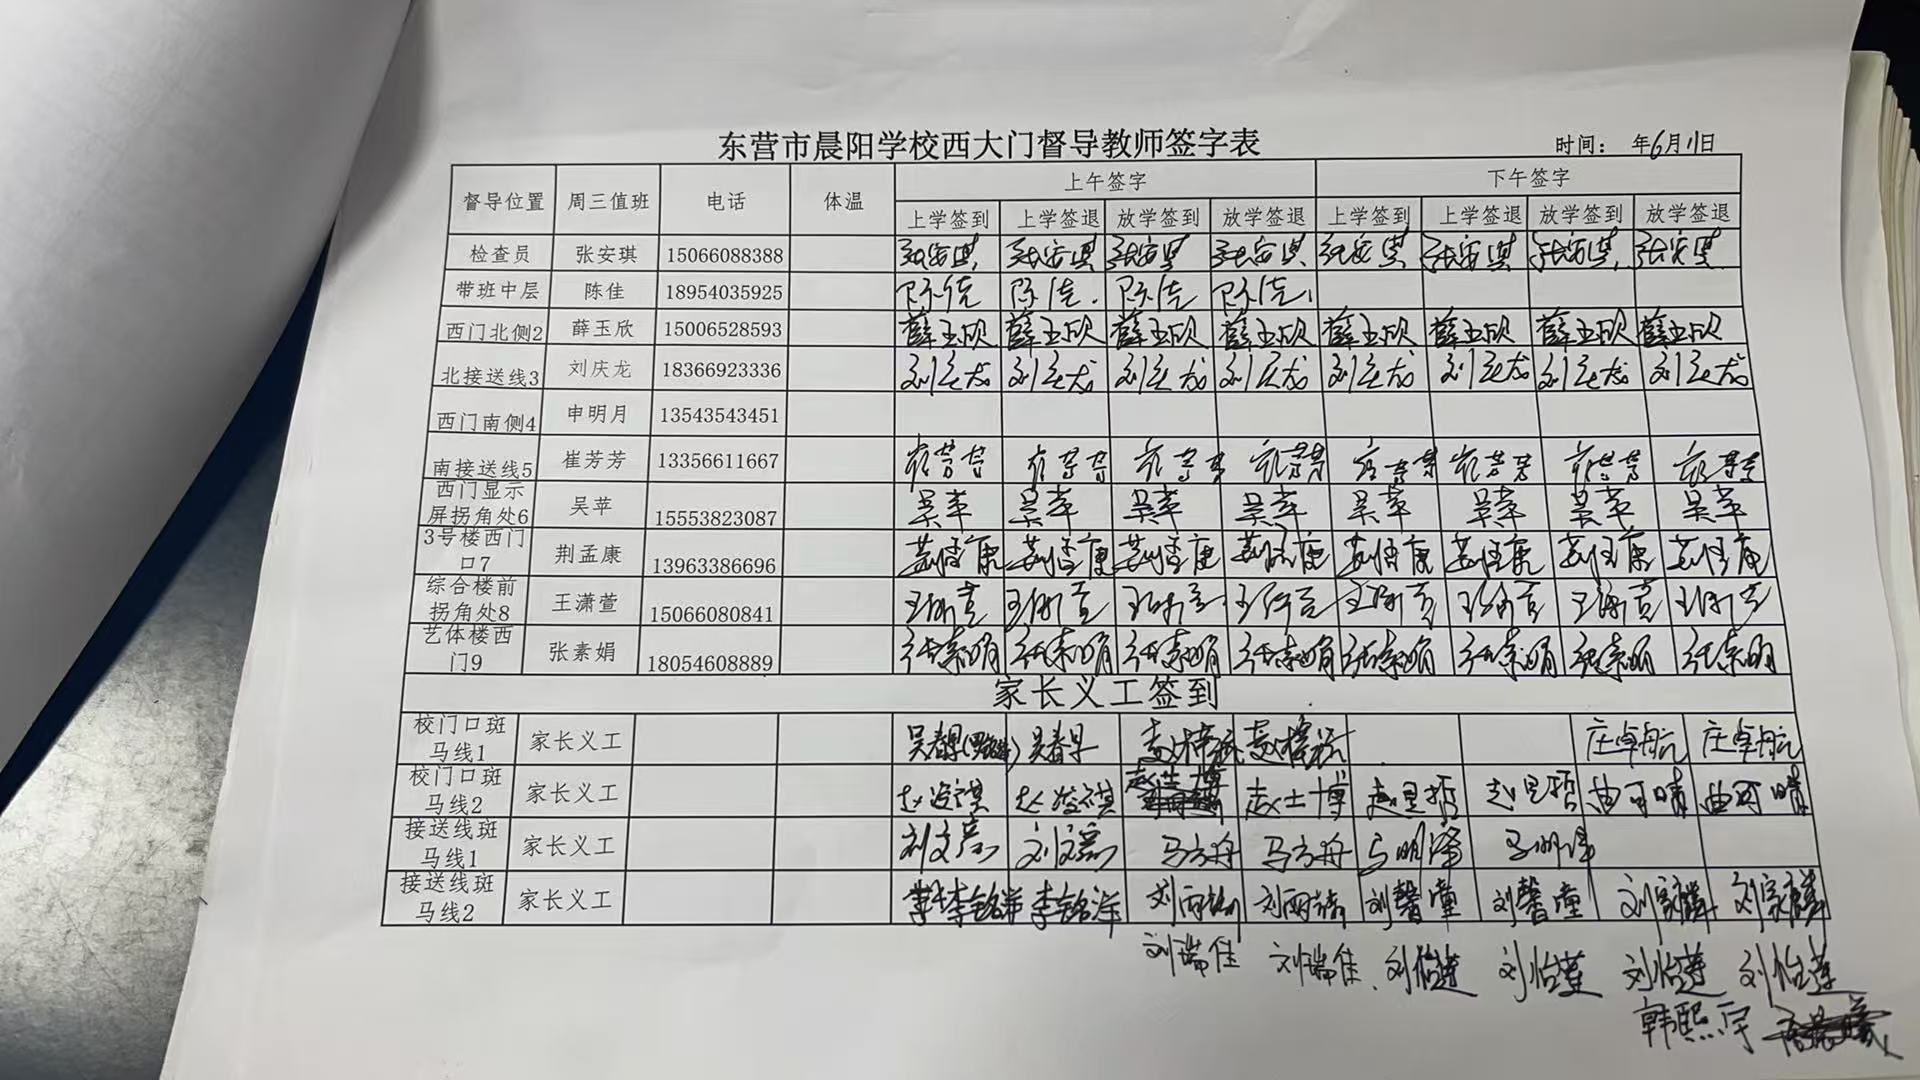 东营市晨阳学校西大门督导教师签字表
时间： 年6月11日
督导位置 周三值班 电话 体温 上午签字 下午签字
上学签到 上学签退 放学签到 放学签退 上学签到 上学签退 放学签到 放学签退
检查员 张安琪 15066088388 张安琪 张安琪 张安琪 张安琪 张安琪 张安琪 张安琪 张安琪
带班中层 陈佳 18954035925 陈佳 陈佳 陈佳 陈佳
西门北侧2 薛玉欣 15006528593 薛玉欣 薛玉欣 薛玉欣 薛玉欣 薛玉欣 薛玉欣 薛玉欣 薛玉欣
北接送线3 刘庆龙 18366923336 刘庆龙 刘庆龙 刘庆龙 刘庆龙 刘庆龙 刘庆龙 刘庆龙 刘庆龙
西门南侧4 申明月 13543543451
南接送线5 崔芳芳 13356611667 崔芳芳 崔芳芳 崔芳芳 崔芳芳 崔芳芳 崔芳芳 崔芳芳 崔芳芳
西门显示
屏拐角处6 吴苹 15553823087 吴苹 吴苹 吴苹 吴苹 吴苹 吴苹 吴苹 吴苹
3号楼西门
口7 荆孟康 13963386696 荆孟康 荆孟康 荆孟康 荆孟康 荆孟康 荆孟康 荆孟康 荆孟康
综合楼前
拐角处8 王潇萱 15066080841 王潇萱 王潇萱 王潇萱 王潇萱 王潇萱 王潇萱 王潇萱 王潇萱
艺体楼西
门9 张素娟 18054608889 张素娟 张素娟 张素娟 张素娟 张素娟 张素娟 张素娟 张素娟
家长义工签到
校门口斑
马线1 家长义工 吴春早 吴春早 庄卓航 庄卓航
校门口斑
马线2 家长义工 赵士博 赵士博 曲可晴 曲可晴
接送线斑
马线1 家长义工 马方舟 马方舟 马明泽 马明泽
接送线斑
马线2 家长义工 李铭洋 李铭洋 刘馨童 刘馨童 刘家麟 刘家麟
刘瑞佳 刘瑞佳 刘怡莲 刘怡莲 刘怡莲 刘怡莲
韩熙宇